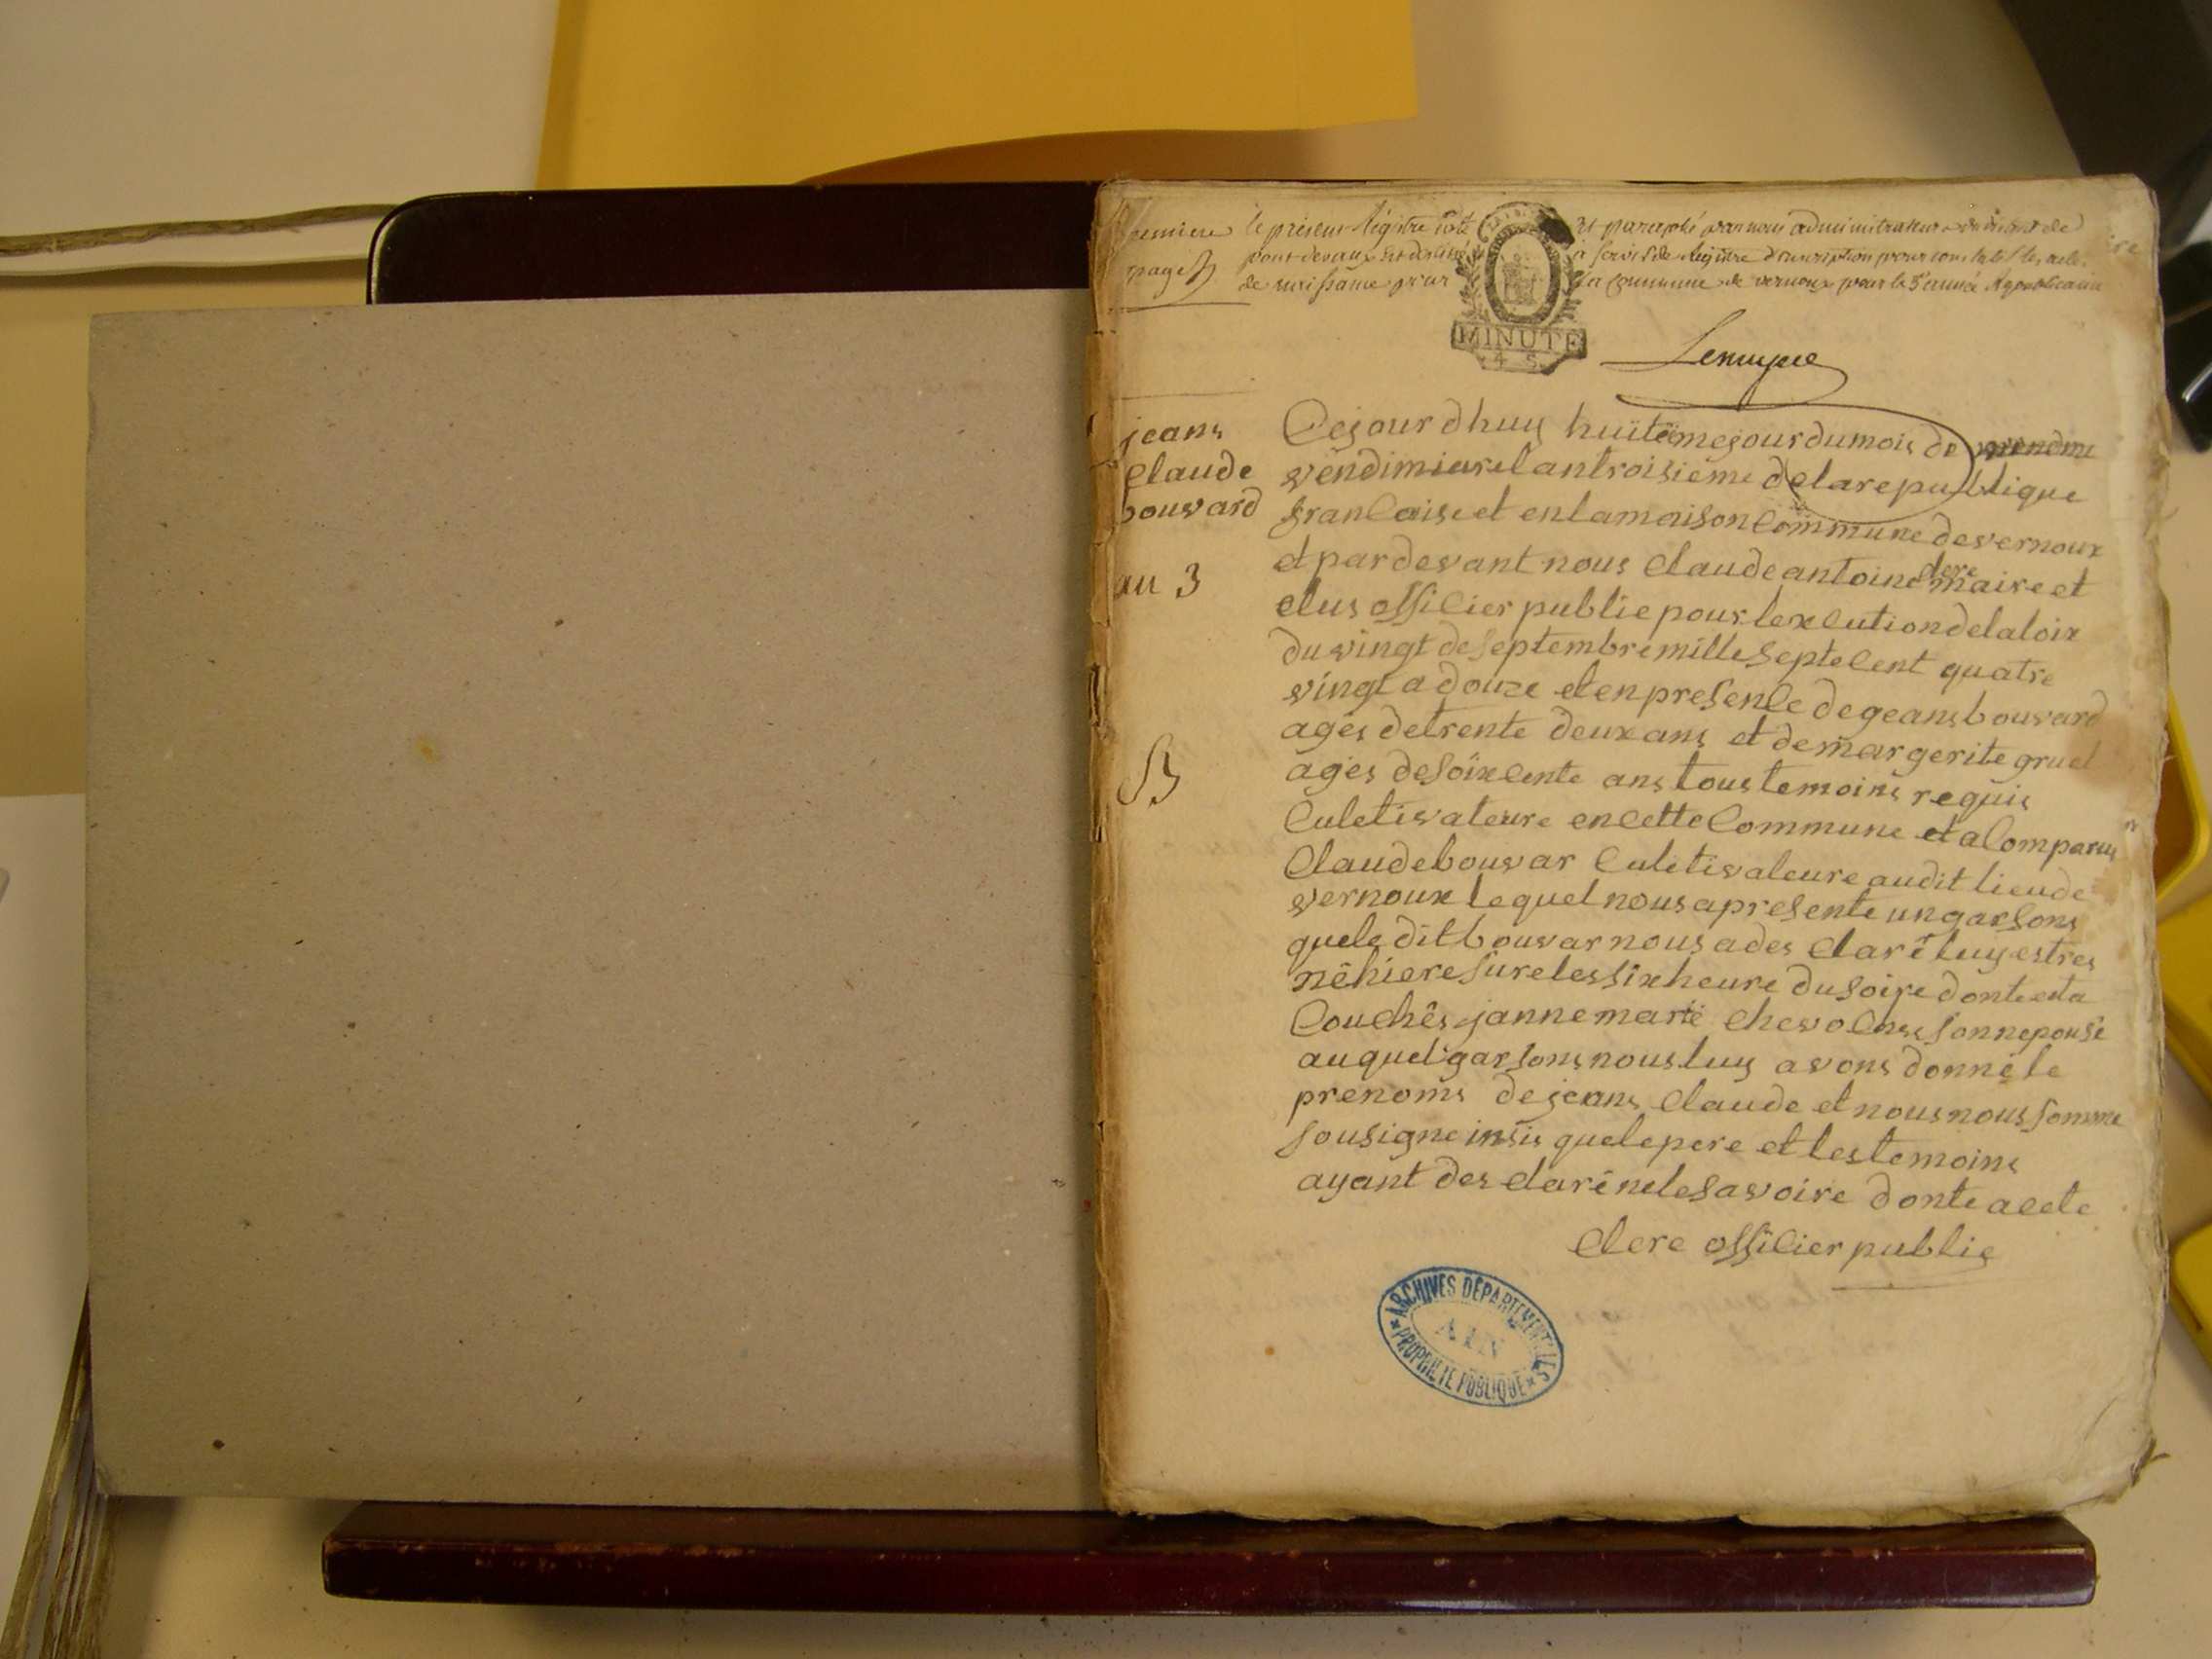 premiere
page
le présent Régistre coté Et paraphé par nous administrateur du district de
pont-devaux Est destiné à servir de Régistre d'inscription pour constater les actes
de naissance pour la commune de vernoux pour la 3e année Republicaine
MINUTE
4 S
jeans
Claude
bouvard
an 3
Cejourdhuy huitemejourdumois de
vendimiarelantroisiéme delarepublique
francaise et enlamaison Commune devernoux
et pardevant nous Claudeantoine clere maire et
elus officier public pourlexcution delaloix
du vingt deseptembre mille septecent quatre
vingt a douze et enpresence degeans bouvard
agés detrente deux ans et demargerite gruel
agés desoixcente ans tous temoins requis
Culetivateure encette Commune et a Comparus
Claudebouvar Culetivateure audit lieude
vernoux lequel nous apresente ungarsons
quele dit bouvar nous a des claré luy estres
néhiere surelessixheure dusoire donte eta
Couchés jannemarie sonnepouse
auquel garsons nous luy avons donné le
prenoms dejeans Claude et nousnous somme
sousigne insis quelepere et lestemoins
ayant des claré nelesavoire donte acete
Clere officier public
ARCHIVES DÉPARTEMENTALES
AIN
PROPRIÉTÉ PUBLIQUE